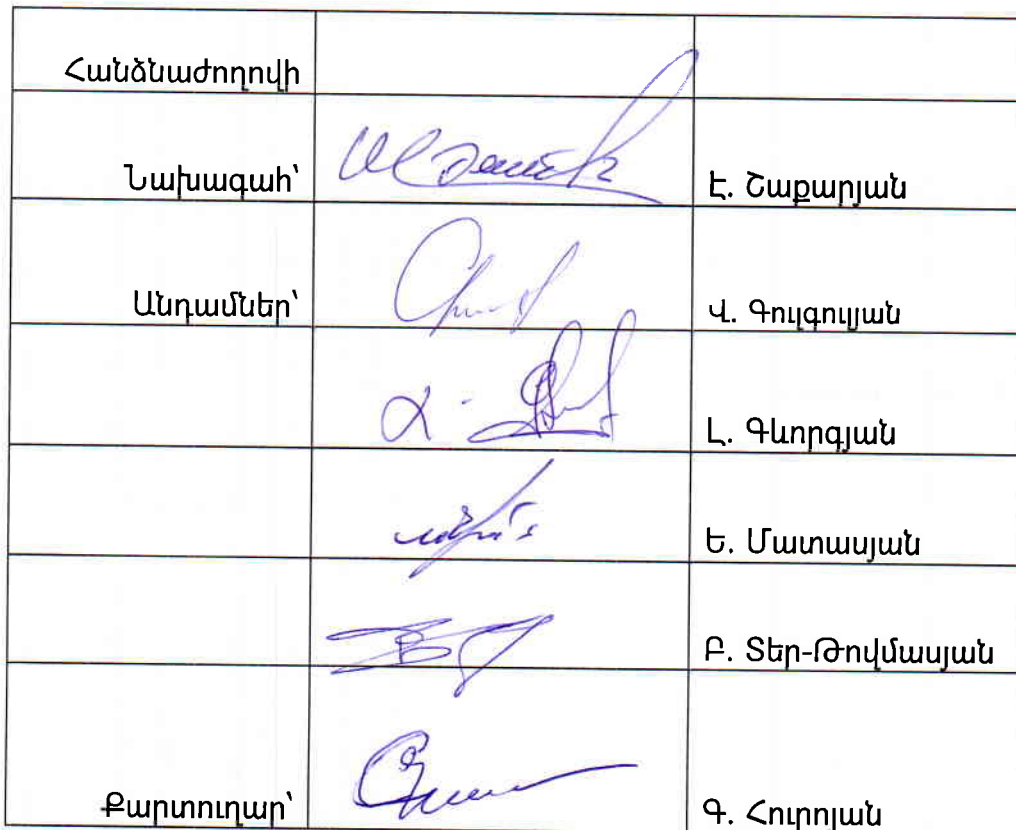 Հանձնաժողովի
Նախագահ՝ Է. Շաքարյան
Անդամներ՝ Վ. Գուլգուլյան
Լ. Գևորգյան
Ե. Մատասյան
Բ. Տեր-Թովմասյան
Քարտուղար՝ Գ. Հուրոյան